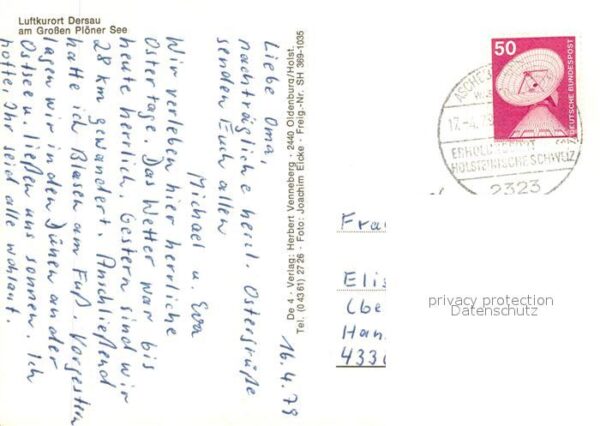 Luftkurort Dersau
am Großen Plöner See
16.4.79
Liebe Oma,
nachträgliche herzl. Ostergrüße
senden Euch allen
Michael u. Ewa
Wir verleben hier herrliche
Ostertage. Das Wetter war bis
heute herrlich. Gestern sind wir
28 km gewandert. Anschließend
hatte ich Blasen am Fuß. Vorgestern
lagen wir in den Dünen an der
Ostsee u. ließen uns sonnen. Ich
hoffe, Ihr seid alle wohlauf.
De 4 · Verlag: Herbert Venneberg · 2440 Oldenburg/Holst.
Tel. (0 43 61) 2726 · Foto: Joachim Eicke · Freig.-Nr. SH 369-1035
50
DEUTSCHE BUNDESPOST
17.-4.79
HOLSTEINISCHE SCHWEIZ
2323
Fra
Elis
(be
Han
433
privacy protection
Datenschutz